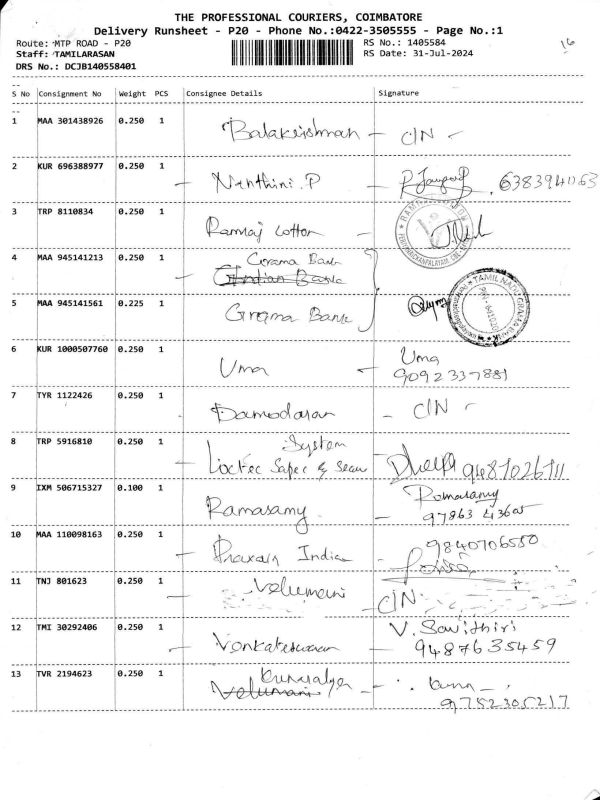 THE PROFESSIONAL COURIERS, COIMBATORE
Delivery Runsheet - P20 - Phone No.:0422-3505555 - Page No.:1
Route: MTP ROAD - P20
RS No.: 1405584
16
Staff: TAMILARASAN
RS Date: 31-Jul-2024
DRS No.: DCJB140558401
S No Consignment No Weight PCS Consignee Details Signature
1 MAA 301438926 0.250 1 Balakrishnan - C/N -
2 KUR 696388977 0.250 1 - Nanthini.P -
3 TRP 8110834 0.250 1 Ramraj Cotton -
4 MAA 945141213 0.250 1 Grama Bank
- Indian Bank
5 MAA 945141561 0.225 1 Grama Bank
TAMIL NADU GRAMA BANK
6 KUR 1000507760 0.250 1 Uma - Uma
9092337881
7 TYR 1122426 0.250 1 Damodaran - C/N -
8 TRP 5916810 0.250 1 System
- Loctec Safec & Secu 9487026711
9 IXM 506715327 0.100 1 Ramasamy - Ramasamy
10 MAA 110098163 0.250 1 - India - 9840706580
11 TNJ 801623 0.250 1 - Velumani - C/N
12 TMI 30292406 0.250 1 - Venkateswaran - V. Savithiri
9487635459
13 TVR 2194623 0.250 1 - Velumani -
9752305217